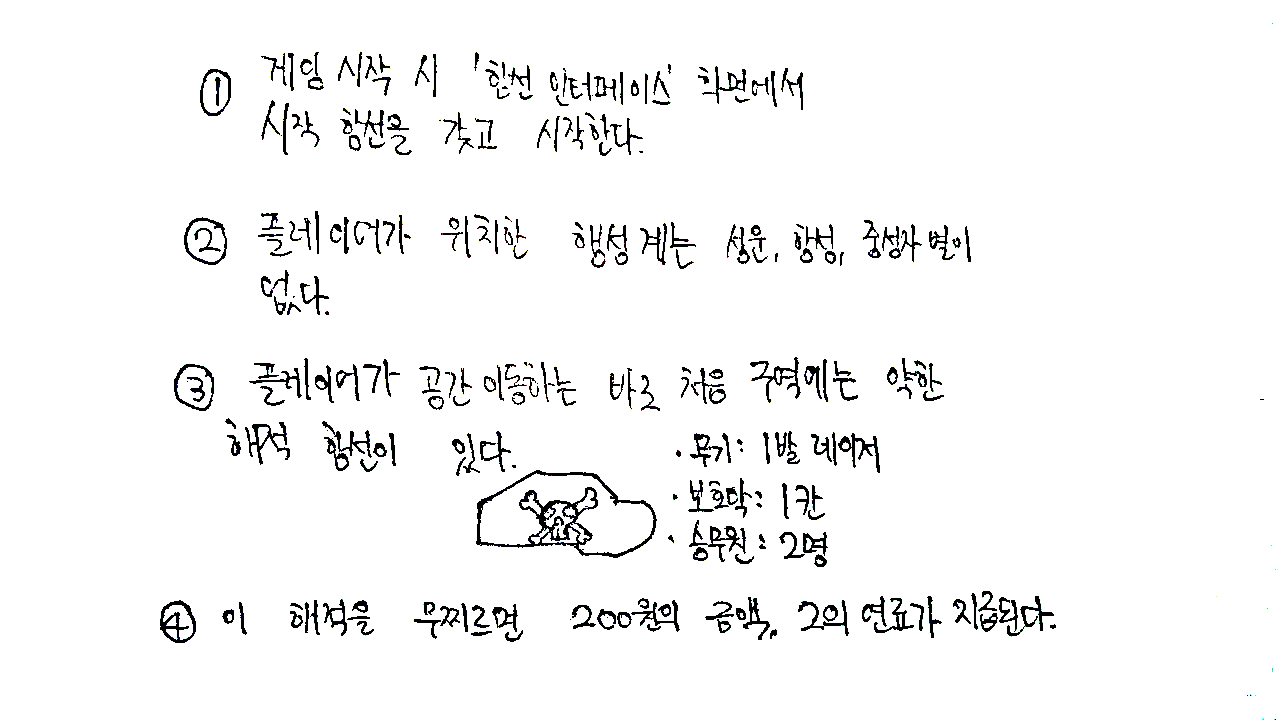 ① 게임 시작 시 '함선 인터페이스' 화면에서
시작 함선을 갖고 시작한다.
② 플레이어가 위치한 행성계는 성운, 항성, 중성자 별이
없다.
③ 플레이어가 공간이동하는 바로 처음 구역에는 약한
해적 함선이 있다.
· 무기: 1발 레이저
· 보호막: 1칸
· 승무원: 2명
④ 이 해적을 무찌르면 200원의 금액, 2의 연료가 지급된다.